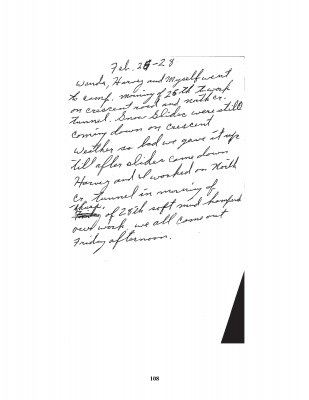 Feb. 26-28
Wanda, Harvey and Myself went
to camp. morning of 26th to work
on crescent road and north cr.
tunnel. Snow Slides were still
coming down on crescent
Weather so bad we gave it up
till after slides came down
Harvey and I worked on North
Cr. tunnel in morning of
thurs.
of 28th soft mud hampered
our work. we all came out
Friday afternoon.
108